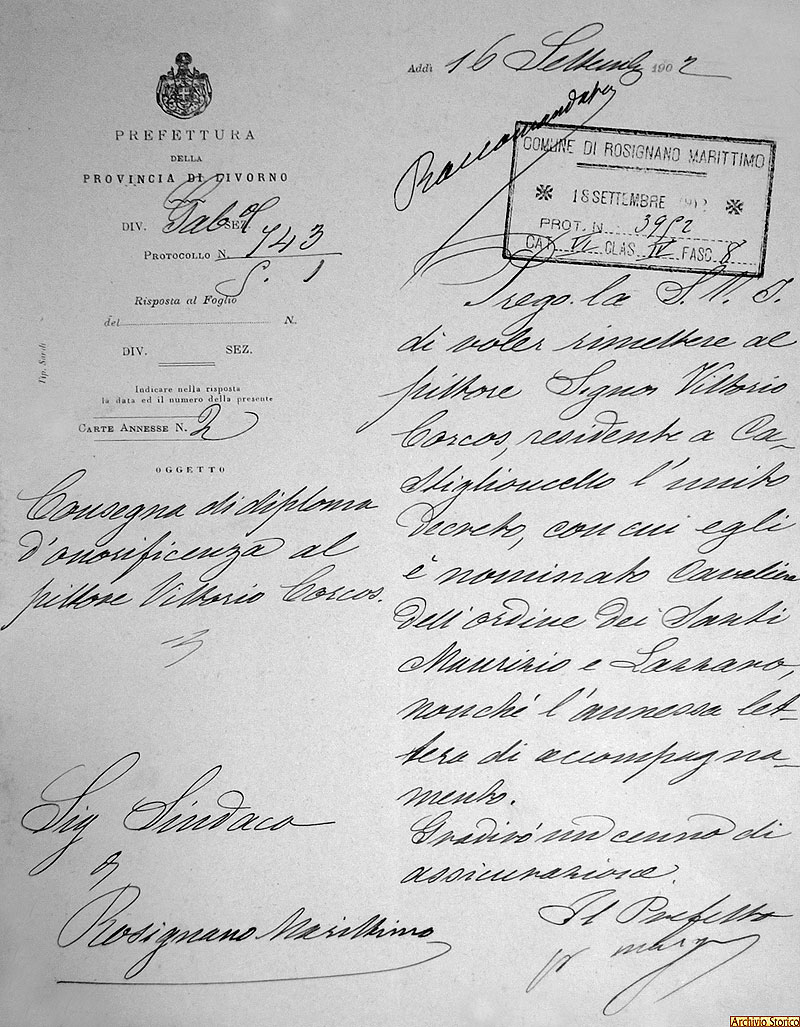 PREFETTURA
DELLA
PROVINCIA DI LIVORNO
DIV. Gab. SEZ.
PROTOCOLLO N. 743
S. 1
Risposta al Foglio
del N.
DIV. SEZ.
Indicare nella risposta
la data ed il numero della presente
CARTE ANNESSE N. 2
OGGETTO
Consegna di diploma
d'onorificenza al
pittore Vittorio Corcos.
Sig Sindaco
Rosignano Marittimo
Tip. Sardi
Addì 16 Settembre 1902
Raccomandata
COMUNE DI ROSIGNANO MARITTIMO
18 SETTEMBRE
PROT. N. 3952
CAT. VI CLAS. IV FASC. 8
Prego la S. V. I.
di voler rimettere al
pittore Signor Vittorio
Corcos, residente a Ca-
stiglioncello l'unito
Decreto, con cui egli
è nominato Cavaliere
dell'ordine dei Santi
Maurizio e Lazzaro,
nonché l'annessa let-
tera di accompagna-
mento.
Gradirò un cenno di
assicurazione.
Il Prefetto
Archivio Storico